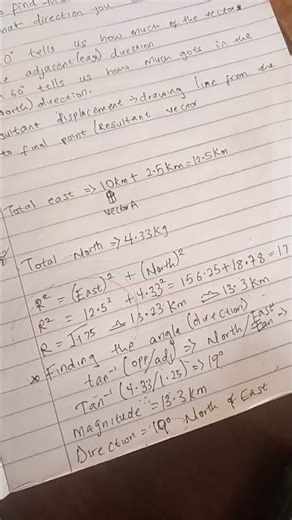 to find
what direction you
0° tells us how much of the vector
adjacent(eas) direction
60° tells us how much goes in the
north) direction.
sultant displacement → drawing line from the
to final point (Resultant vector
Total east => 10km + 2.5km = 12.5km
vector A
Total North => 4.33kg
R² = (East)² + (North)²
R² = 12.5² + 4.33² = 156.25 + 18.78 = 17
R = √175 ≏ 13.23 km ≏ 13.3 km
Finding the angle (direction)
tan⁻¹ (opp/adj) => North/East
tan →
Tan⁻¹ (4.33/1.25) => 19°
Magnitude = 13.3km
Direction = 19° North of East